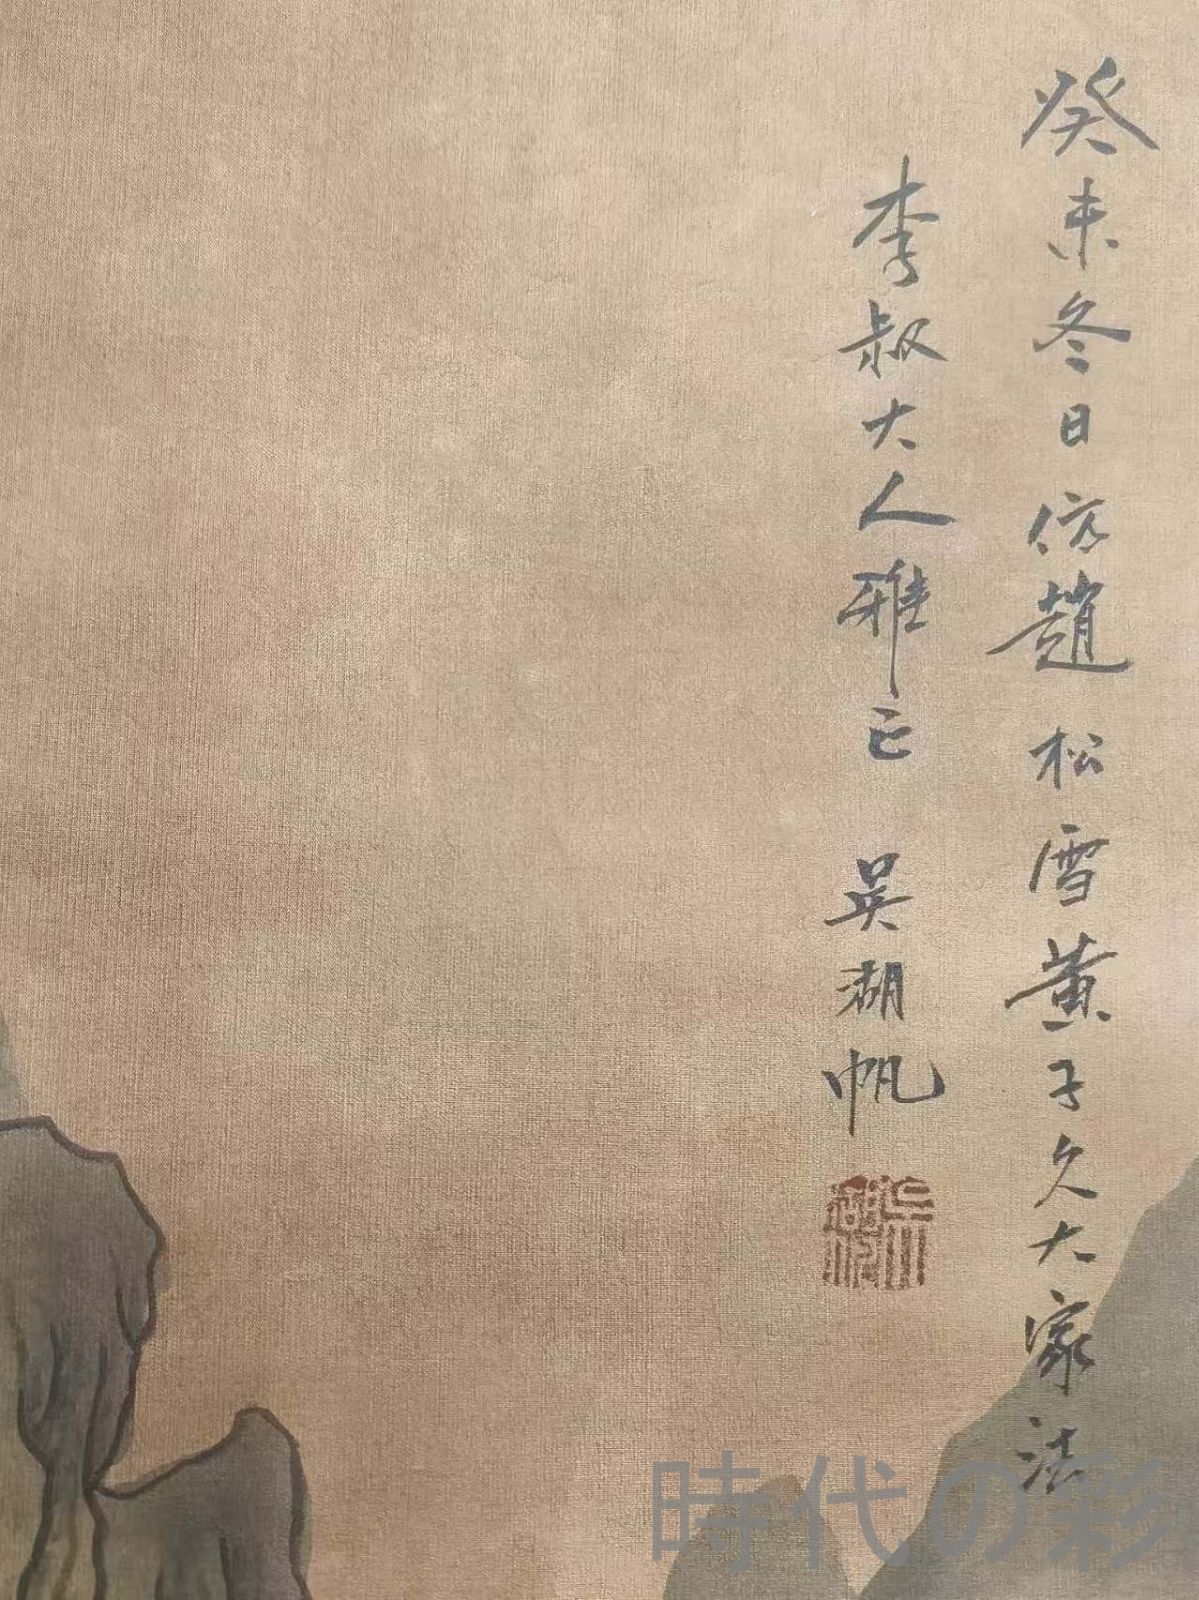 癸未冬日仿趙松雪黃子久大家法
李叔大人雅正 吴湖帆
吴湖帆
時代の彩